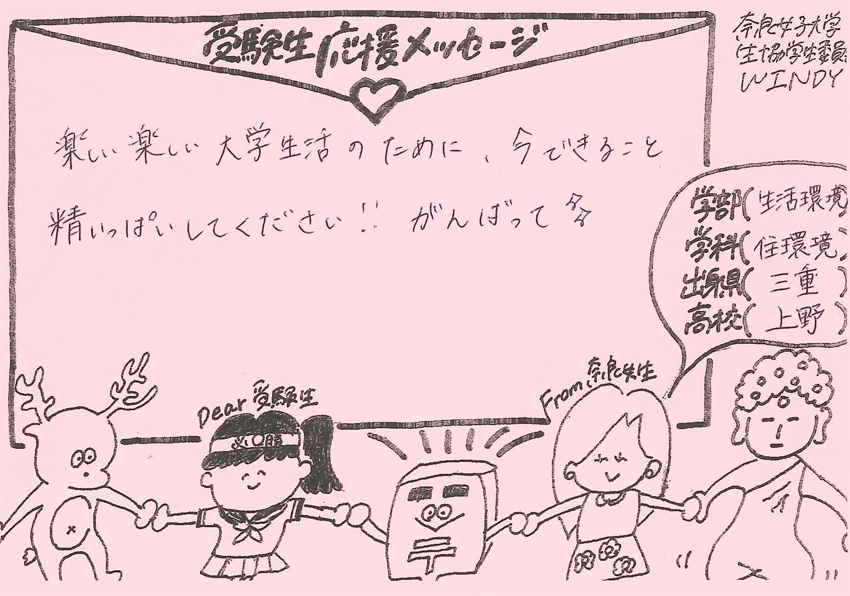 受験生応援メッセージ
奈良女子大学
生協学生委員
WINDY
楽しい楽しい大学生活のために、今できること
精いっぱいしてください!! がんばって
学部(生活環境)
学科(住環境)
出身県(三重)
高校(上野)
Dear 受験生
From 奈良女生
必〇勝
〒